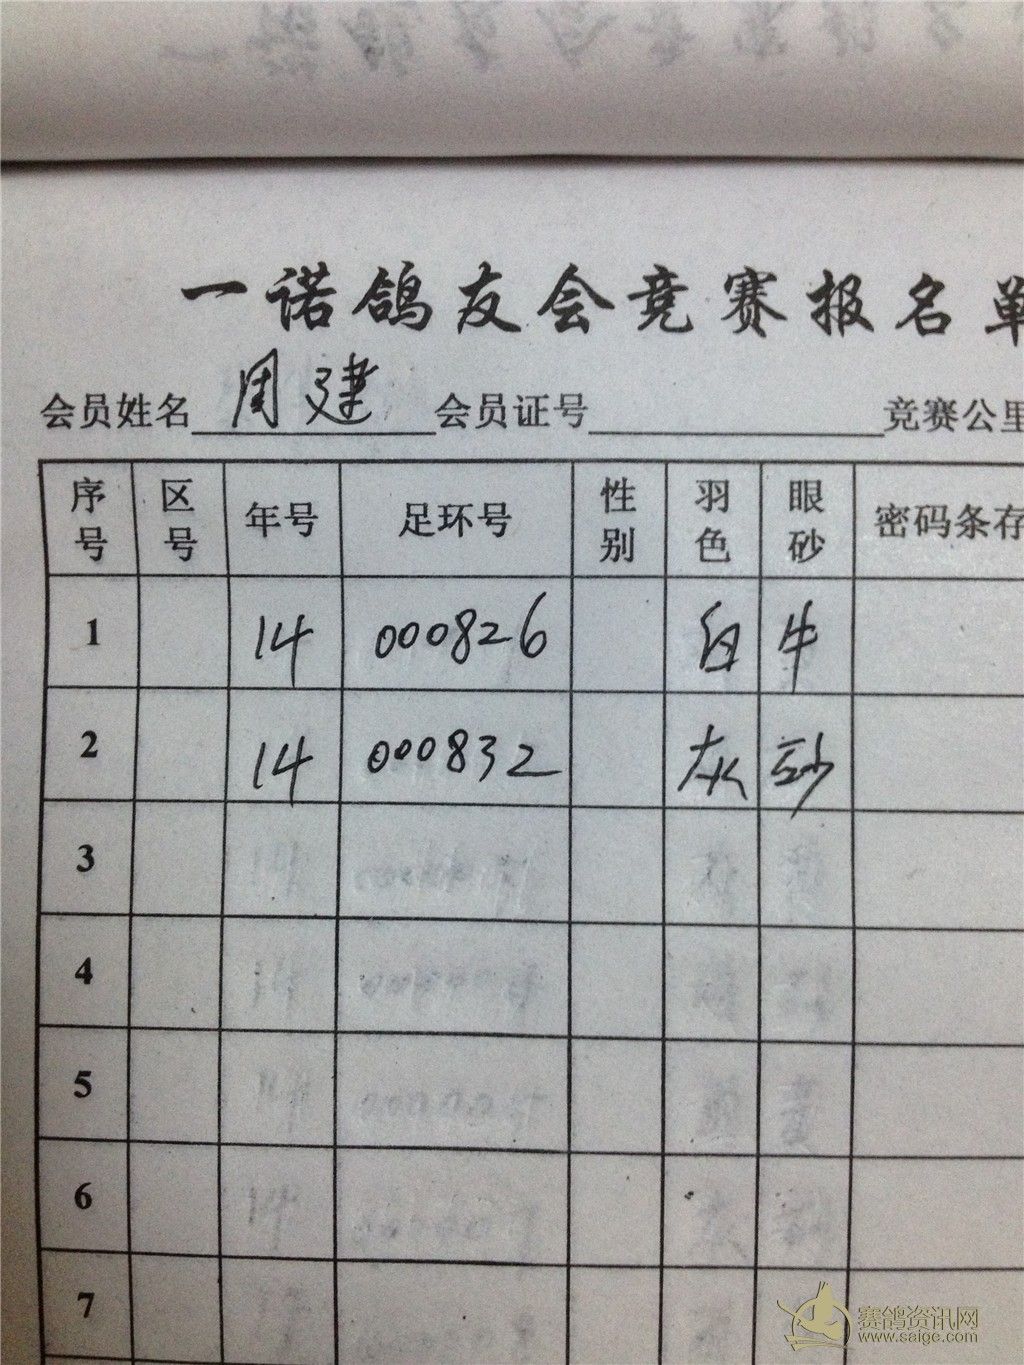 一诺鸽友会竞赛报名单
会员姓名 周建 会员证号 竞赛公里
序号 区号 年号 足环号 性别 羽色 眼砂 密码条存
1 14 000826 白 牛
2 14 000832 灰 砂
3
4
5
6
7
赛鸽资讯网
www.saige.com